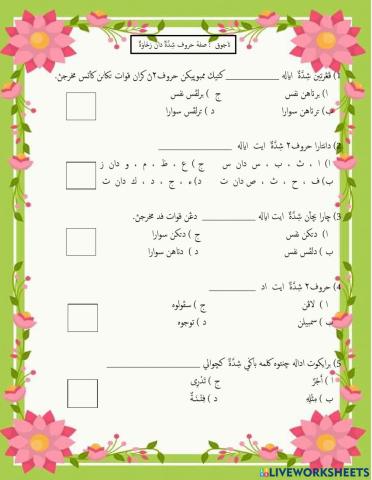 تاجوق : صفة حروف شِدَّة دان رَخَاوَة
1) ڤڠرتين شِدَّة اياله __________ كتيك ممبوڽيكن حروف٢ڽ كران قوات تكانن كأتس مخرجڽ.
ا) برتاهن نفس ج) برلڤس نفس
ب) ترتاهن سوارا د) ترلڤس سوارا
2) دانتارا حروف٢ شِدَّة ايت اياله
ا) ا ، ث ، ب ، س دان س ج) ع ، ظ ، م ، و دان ز
ب) ف ، ح ، ث ، ص دان ت د) ء ، ج ، د ، ك دان ت
3) چارا شِدَّة ايت اياله __________ دڠن قوات ڤد مخرجڽ.
ا) دتكن نفس ج) دتكن سوارا
ب) دلڤس نفس د) دتاهن سوارا
4) حروف٢ شِدَّة ايت اد __________
ا) لاڤن ج) سڤولوه
ب) سمبيلن د) توجوه
5) برايكوت اداله چنتوه كلمه باڬي شِدَّة كچوالي __________
ا) أَجْرٌ ج) تَدْرِى
ب) مِثْلِهِ د) فِتْنَةٌ
LIVEWORKSHEETS